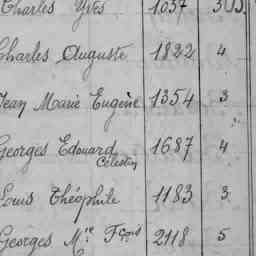 Charles Yves 1037 305.
Charles Auguste 1822 4
Jean Marie Eugène 1354 3
Georges Edouard 1687 4
Célestin
Louis Théophile 1183 3
Georges M.ie Fçois 2118 5